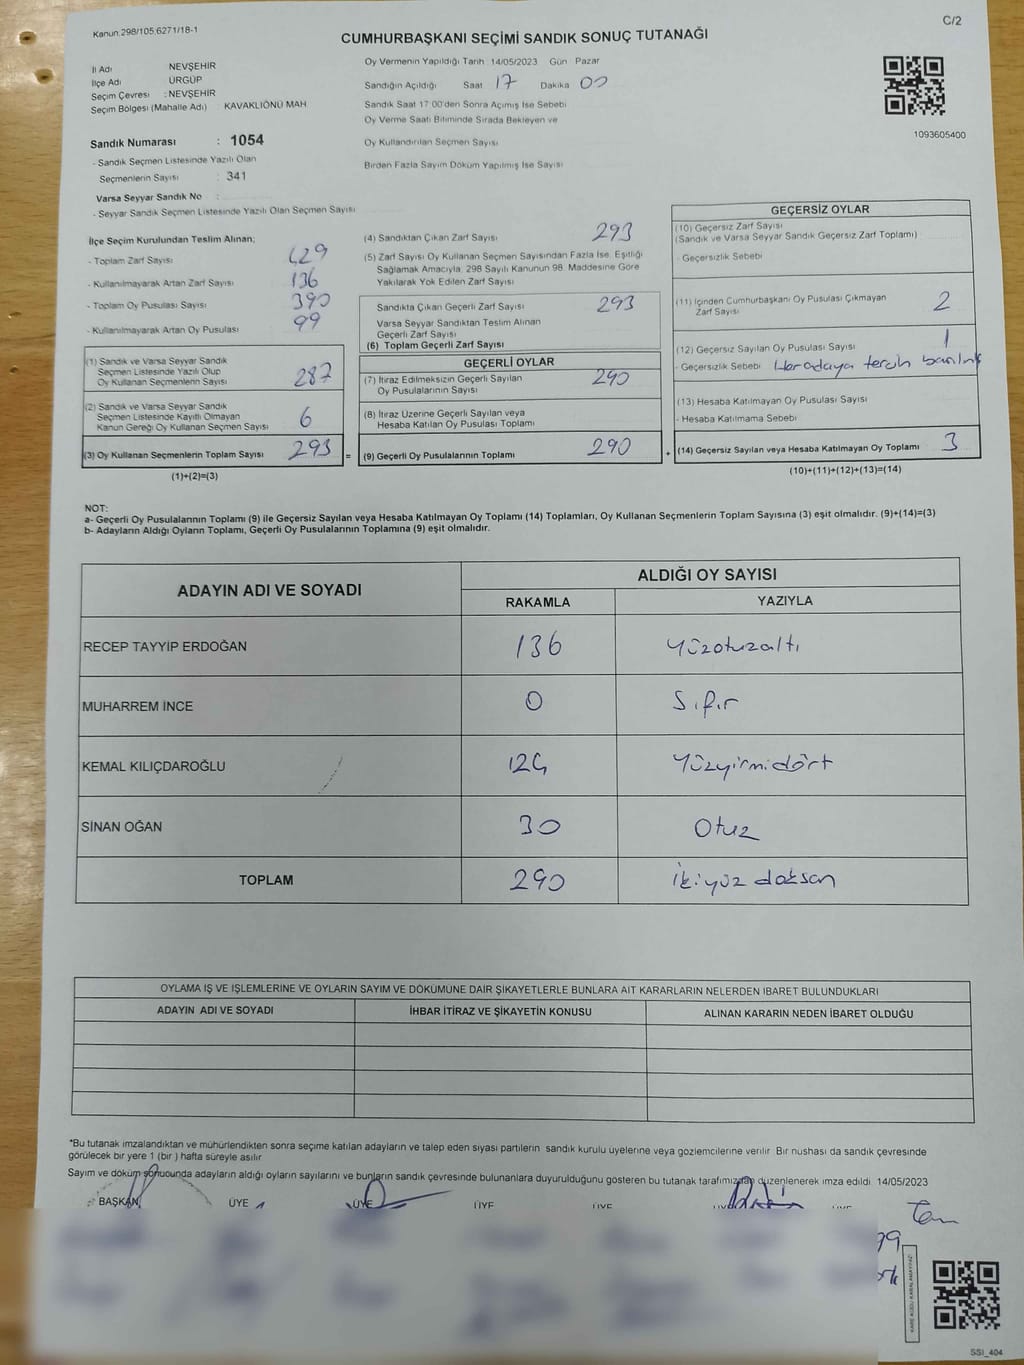 Kanun.298/105,6271/18-1
C/2
CUMHURBAŞKANI SEÇİMİ SANDIK SONUÇ TUTANAĞI
İl Adı NEVŞEHİR
İlçe Adı ÜRGÜP
Seçim Çevresi : NEVŞEHİR
Seçim Bölgesi (Mahalle Adı) : KAVAKLIÖNÜ MAH
Oy Vermenin Yapıldığı Tarih 14/05/2023 Gün Pazar
Sandığın Açıldığı Saat 17 Dakika 00
Sandık Saat 17:00'den Sonra Açımış İse Sebebi
Oy Verme Saati Bitiminde Sırada Bekleyen ve
Oy Kullandırılan Seçmen Sayısı
Birden Fazla Sayım Döküm Yapılmış İse Sayısı
1093605400
Sandık Numarası : 1054
- Sandık Seçmen Listesinde Yazılı Olan
Seçmenlerin Sayısı : 341
Varsa Seyyar Sandık No :
- Seyyar Sandık Seçmen Listesinde Yazılı Olan Seçmen Sayısı
İlçe Seçim Kurulundan Teslim Alınan;
- Toplam Zarf Sayısı 429
- Kullanılmayarak Artan Zarf Sayısı 136
- Toplam Oy Pusulası Sayısı 390
- Kullanılmayarak Artan Oy Pusulası 99
(1) Sandık ve Varsa Seyyar Sandık
Seçmen Listesinde Yazılı Olup
Oy Kullanan Seçmenlerin Sayısı 287
(2) Sandık ve Varsa Seyyar Sandık
Seçmen Listesinde Kayıtlı Olmayan
Kanun Gereği Oy Kullanan Seçmen Sayısı 6
(3) Oy Kullanan Seçmenlerin Toplam Sayısı 293 =
(1)+(2)=(3)
(4) Sandıktan Çıkan Zarf Sayısı 293
(5) Zarf Sayısı Oy Kullanan Seçmen Sayısından Fazla İse, Eşitliği
Sağlamak Amacıyla, 298 Sayılı Kanunun 98. Maddesine Göre
Yakılarak Yok Edilen Zarf Sayısı
Sandıkta Çıkan Geçerli Zarf Sayısı 293
Varsa Seyyar Sandıktan Teslim Alınan
Geçerli Zarf Sayısı
(6) Toplam Geçerli Zarf Sayısı
GEÇERLİ OYLAR
(7) İtiraz Edilmeksizin Geçerli Sayılan
Oy Pusulalarının Sayısı 290
(8) İtiraz Üzerine Geçerli Sayılan veya
Hesaba Katılan Oy Pusulası Toplamı
(9) Geçerli Oy Pusulalarının Toplamı 290 +
GEÇERSİZ OYLAR
(10) Geçersiz Zarf Sayısı
(Sandık ve Varsa Seyyar Sandık Geçersiz Zarf Toplamı)
- Geçersizlik Sebebi
(11) İçinden Cumhurbaşkanı Oy Pusulası Çıkmayan
Zarf Sayısı 2
(12) Geçersiz Sayılan Oy Pusulası Sayısı 1
- Geçersizlik Sebebi Her adaya tercih
(13) Hesaba Katılmayan Oy Pusulası Sayısı
- Hesaba Katılmama Sebebi
(14) Geçersiz Sayılan veya Hesaba Katılmayan Oy Toplamı 3
(10)+(11)+(12)+(13)=(14)
NOT:
a- Geçerli Oy Pusulalarının Toplamı (9) ile Geçersiz Sayılan veya Hesaba Katılmayan Oy Toplamı (14) Toplamları, Oy Kullanan Seçmenlerin Toplam Sayısına (3) eşit olmalıdır. (9)+(14)=(3)
b- Adayların Aldığı Oyların Toplamı, Geçerli Oy Pusulalarının Toplamına (9) eşit olmalıdır.
ADAYIN ADI VE SOYADI
ALDIĞI OY SAYISI
RAKAMLA YAZIYLA
RECEP TAYYİP ERDOĞAN 136 Yüzotuzaltı
MUHARREM İNCE 0 Sıfır
KEMAL KILIÇDAROĞLU 124 Yüzyirmidört
SİNAN OĞAN 30 Otuz
TOPLAM 290 İkiyüz doksan
OYLAMA İŞ VE İŞLEMLERİNE VE OYLARIN SAYIM VE DÖKÜMÜNE DAİR ŞİKAYETLERLE BUNLARA AİT KARARLARIN NELERDEN İBARET BULUNDUKLARI
ADAYIN ADI VE SOYADI İHBAR İTİRAZ VE ŞİKAYETİN KONUSU ALINAN KARARIN NEDEN İBARET OLDUĞU
*Bu tutanak imzalandıktan ve mühürlendikten sonra seçime katılan adayların ve talep eden siyasi partilerin sandık kurulu üyelerine veya gözlemcilerine verilir. Bir nüshası da sandık çevresinde
görülecek bir yere 1 (bir ) hafta süreyle asılır
Sayım ve döküm sonucunda adayların aldığı oyların sayılarını ve bunların sandık çevresinde bulunanlara duyurulduğunu gösteren bu tutanak tarafımızdan düzenlenerek imza edildi. 14/05/2023
BAŞKAN ÜYE ÜYE ÜYE ÜYE
KARE KODU KARALAMAYINIZ!
SSI_404